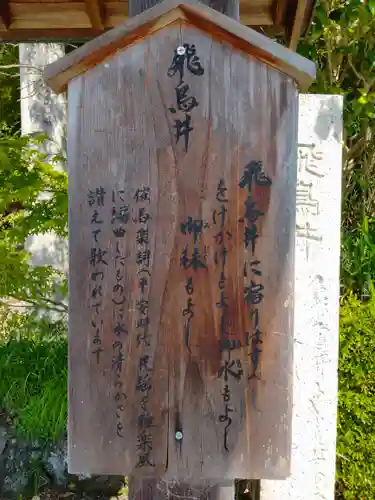 飛鳥井
飛鳥井に宿りはすべし
をけかけもよし 御水もよし
御秣もよし
催馬楽譜(平安時代 民謡を雅楽風
に編曲したもの)に水の清らかさを
讃えて歌われています
飛鳥井